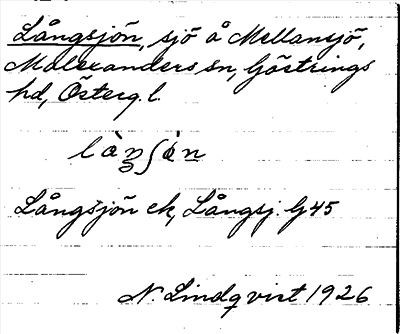 Långsjön, sjö å Mellansjö,
Malexanders sn, Göstrings
hd, Österg. l.
Långsjön ek, Långsj. G45
N. Lindqvist 1926